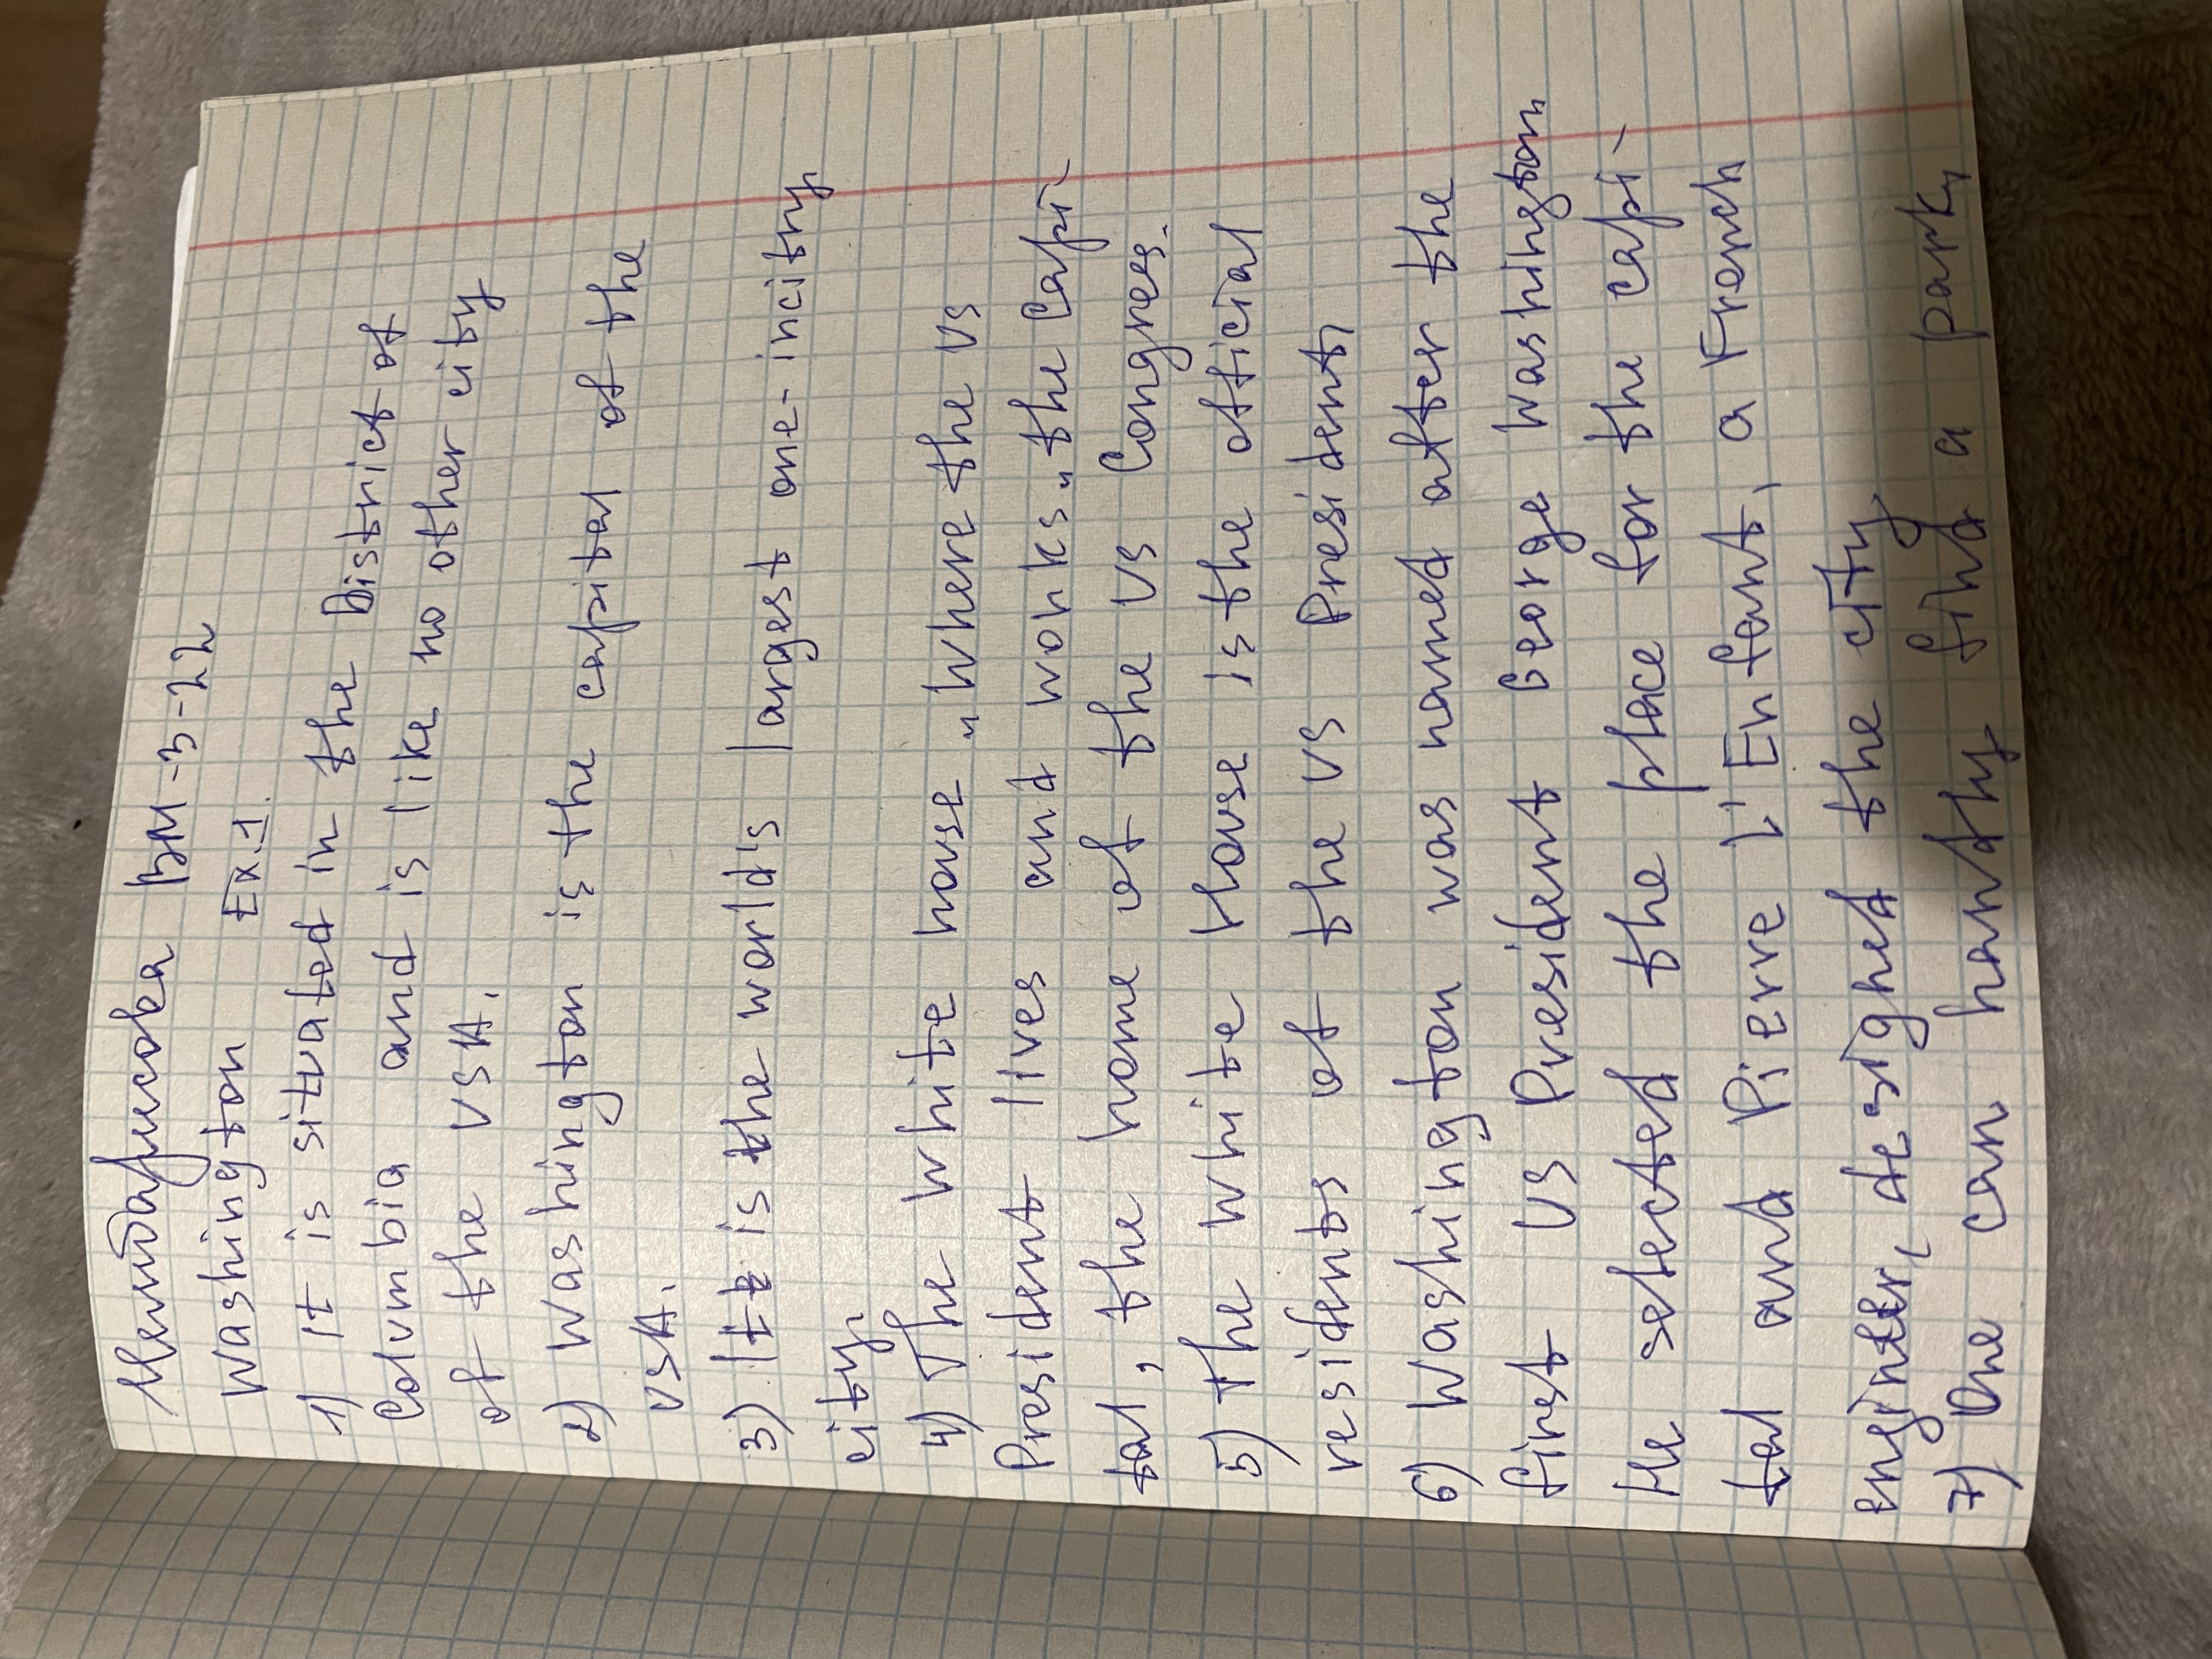 БМ-3-22
Washington Ex.1.
1) It is situated in the District of
Columbia and is like no other city
of the USA.
2) Washington is the capital of the
USA.
3) It is the world's largest one-incitry
city.
4) The white house „where the US
President lives and works„ the Capi-
tal, the home of the US Congress.
5) The white House is the official
residents of the US President,
6) Washington was named after the
first US President George Washington
He selected the place for the capi-
tal and Pierre L'Enfant, a French
enginter, desighed the city
7) One can hardly find a park,